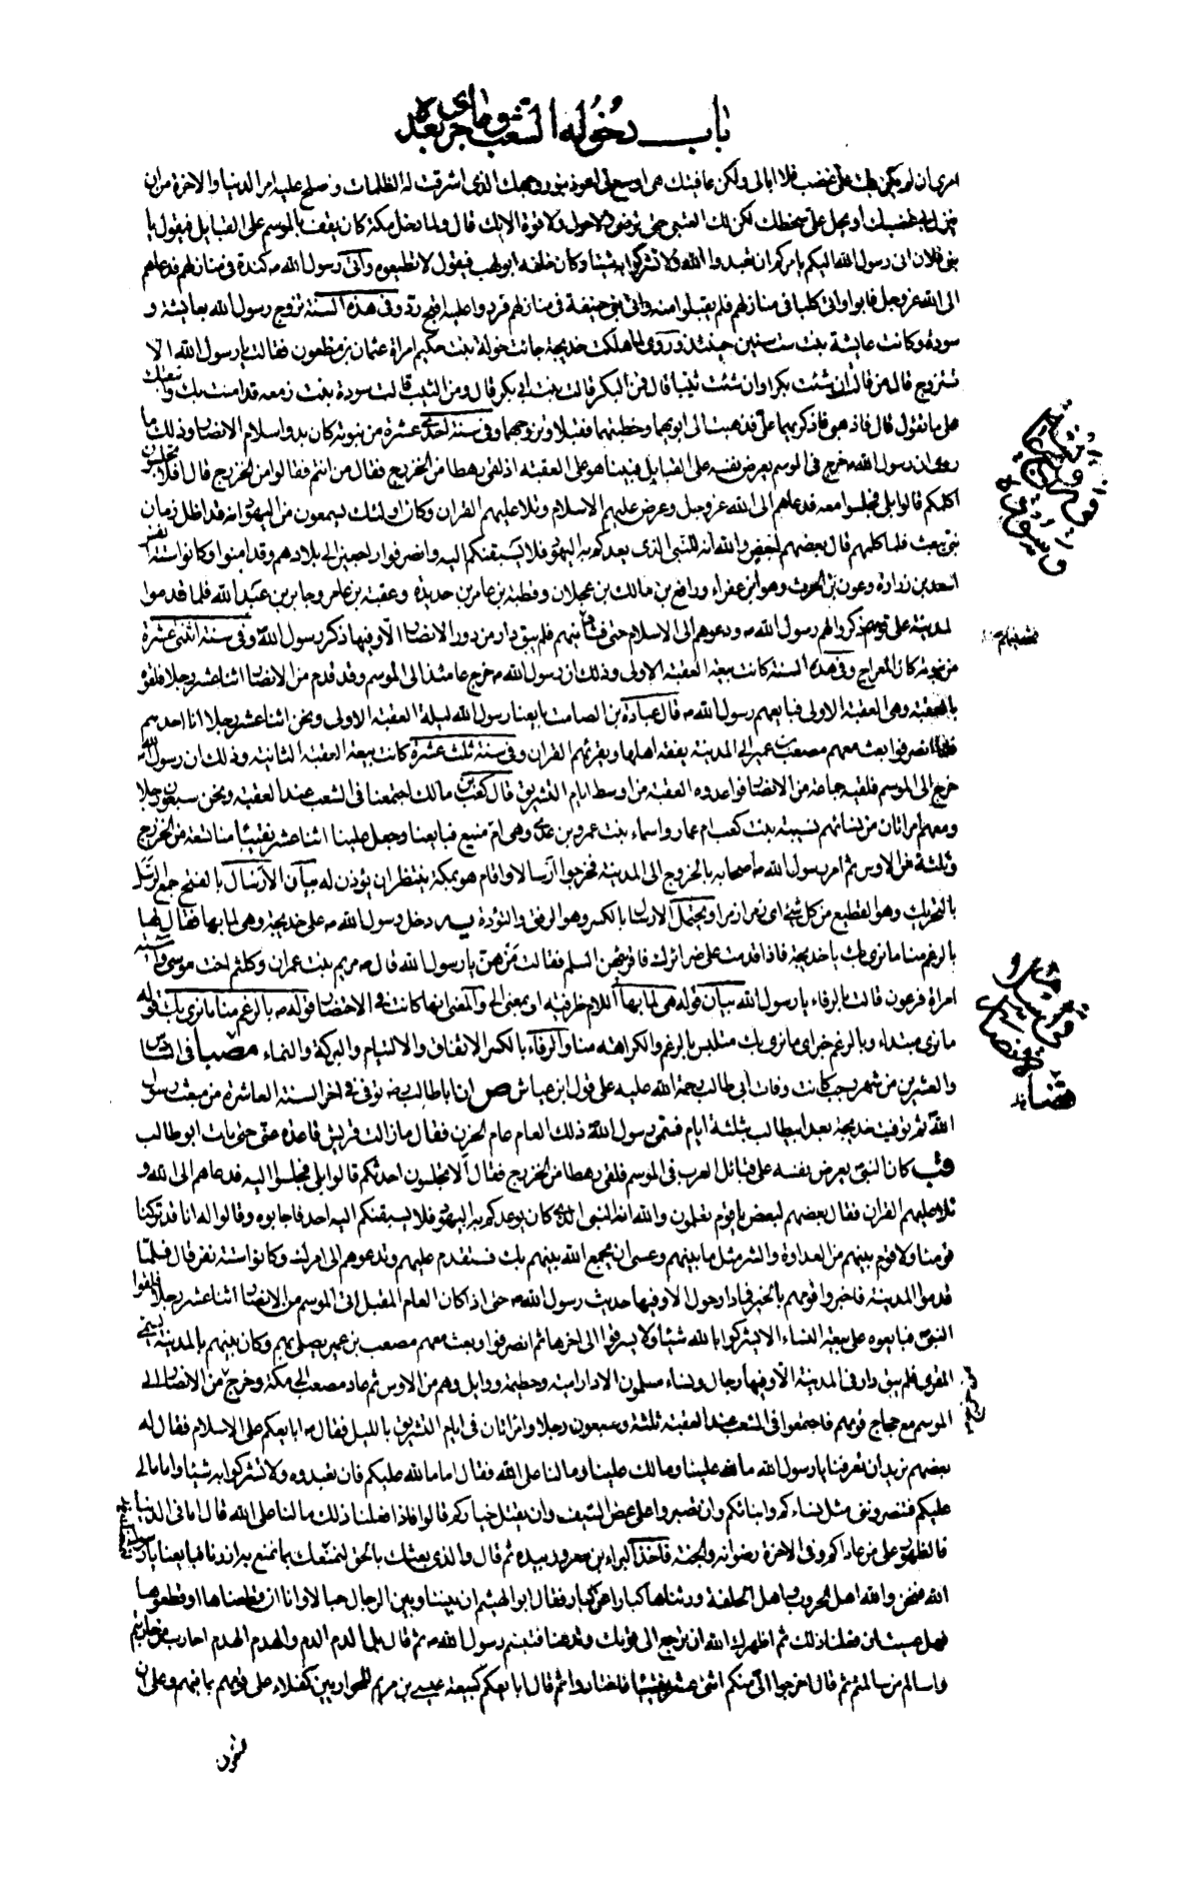 باب دخوله الشعب وما جرى بعده
امرى ان لم يكن بك على غضب فلا ابالى ولكن عافيتك هى اوسع لى اعوذ بنور وجهك الذى اشرقت له الظلمات وصلح عليه امر الدنيا والاخرة من ان
ينزل بى غضبك أو يحل على سخطك لكن لك العتبى حتى ترضى ولا حول ولا قوة الا بك قال ولما دخل مكة كان يقف بالموسم على القبايل فيقول يا
بنى فلان انى رسول الله اليكم يامركم ان تعبدوا الله ولا تشركوا به شيئا وكان خلفه ابو لهب فيقول لا تطيعوه وأتى رسول الله ص كندة فى منازلهم فدعاهم
الى الله عز وجل فابوا واتى كلبا فى منازلهم فلم يقبلوا منه واتى بنى حنيفة فى منازلهم فردوا عليه اقبح رد وفى هذه السنة تزوج رسول الله بعايشة و
سودة وكانت عايشة بنت ست سنين حينئذ وروى لما هلكت خديجة جاءت خولة بنت حكيم امراة عثمان بن مظعون فقالت يا رسول الله الا
تتزوج قال من قالت ان شئت بكرا وان شئت ثيبا قال فمن البكر قالت بنت ابى بكر قال ومن الثيب قالت سودة بنت زمعه قد امنت بك واتبعتك
على ما تقول قال فاذهبى فاذكريهما على فذهبت الى ابويهما وخطبتهما فقبلا وتزوجهما وفى سنة احدى عشرة من نبوته كان بدو اسلام الانصار وذلك ما
روى ان رسول الله ص خرج فى الموسم يعرض نفسه على القبايل فبينا هو على العقبه اذ لقى رهطا من الخزرج فقال من انتم فقالوا من الخزرج قال افلا تجلسون
اكلمكم قالوا بلى فجلسوا معه فدعاهم الى الله عز وجل وعرض عليهم الاسلام وتلا عليهم القران وكان اولئك يسمعون من اليهود انه قد اظل زمان
نبى يبعث فلما كلمهم قال بعضهم لبعض والله انه للنبى الذى يعدكم به اليهود فلا يسبقنكم اليه وانصرفوا راجعين الى بلادهم وقد امنوا وكانوا ستة نفر
اسعد بن زرارة وعون بن الحرث وهو ابن عفراء ورافع بن مالك بن عجلان وقطبة بن عامر بن حديدة وعقبة بن عامر وجابر بن عبد الله فلما قدموا
المدينة على قومهم ذكروا لهم رسول الله ص ودعوهم الى الاسلام حتى فشا بينهم فلم يبق دار من دور الانصار الا وفيها ذكر رسول الله ص وفى سنة اثنتى عشرة
من نبوته كان المعراج وفى هذه السنة كانت بيعة العقبة الاولى وذلك ان رسول الله ص خرج عامئذ الى الموسم وقد قدم من الانصار اثنا عشر رجلا فلقوه
بالعقبة وهى العقبة الاولى فبايعهم رسول الله ص قال عبادة بن الصامت بايعنا رسول الله ليلة العقبة الاولى ونحن اثنا عشر رجلا انا احدهم
فلما انصرفوا بعث معهم مصعب بن عمير الى المدينة يفقه اهلها ويقرئهم القران وفى سنة ثلث عشرة كانت بيعة العقبة الثانية وذلك ان رسول الله
خرج الى الموسم فلقيه جماعة من الانصار فواعدوه العقبة من اوسط ايام التشريق قال كعب بن مالك اجتمعنا فى الشعب عند العقبة ونحن سبعون رجلا
ومعهم امراتان من نسائهم نسيبة بنت كعب ام عمار واسماء بنت عمرو بن عدى وهى ام منيع فبايعنا وجعل علينا اثنا عشر نقيبا منا تسعة من الخزرج
وثلثة من الاوس ثم امر رسول الله ص أصحابه بالخروج الى المدينة فخرجوا ارسالا واقام هو بمكة ينتظر ان يؤذن له بيان الارسال بالفتح جمع الرسل
بالتحريك وهو القطيع من كل شئ اى زمرا زمرا ويحتمل الارسال بالكسر وهو الرفق والتؤدة يه دخل رسول الله ص على خديجة وهى لما بها فقال لها
بالرغم منا ما نرى بك يا خديجة فاذا قدمت على ضرائرك فاقرئيهن السلم فقالت من هن يا رسول الله قال ص مريم بنت عمران وكلثم اخت موسى واسية
امراة فرعون قالت بالرفاء يا رسول الله بيان قوله هى لما بها اللام ظرفية او بمعنى الى والمعنى انها كانت فى الاحتضار قوله ص بالرغم منا ما نرى بك قوله
ما نرى مبتداء وبالرغم خبر اى ما نرى بك متلبس بالرغم والكراهة منا والرفاء بالكسر الاتفاق والالتيام والبركة والنماء مصبا فى السادس
والعشرين من شهر رجب كانت وفات أبى طالب رحمة الله عليه على قول ابن عباش ص ان ابا طالب رض توفى فى اخر السنة العاشرة من مبعث رسول
الله ثم توفيت خديجة بعد ابيطالب بثلثة ايام فسمى رسول الله ذلك العام عام الحزن فقال ما زالت قريش قاعدة عنى حتى مات ابو طالب
قب كان النبى يعرض نفسه على قبائل العرب فى الموسم فلقى رهطا من الخزرج فقال الا تجلسون احدثكم قالوا بلى فجلسوا اليه فدعاهم الى الله و
تلا عليهم القران فقال بعضهم لبعض يا قوم تعلمون والله انه النبى الذى كان يوعدكم به اليهود فلا يسبقنكم اليه احد فاجابوه وقالوا له انا قد تركنا
قومنا ولا قوم بينهم من العداوة والشر مثل ما بينهم وعسى ان يجمع الله بينهم بك فستقدم عليهم وتدعوهم الى امرك وكانوا ستة نفر قال فلما
قدموا المدينة فاخبروا قومهم بالخبر فما دار حول الا وفيها حديث رسول الله ص حتى اذا كان العام المقبل اتى الموسم من الانصار اثنا عشر رجلا فلقوا
النبى فبايعوه على بيعة النساء الا يشركوا بالله شيئا ولا يسرقوا الى اخرها ثم انصرفوا وبعث معهم مصعب بن عمير يصلى بهم وكان بينهم بالمدينة يسمى
المقرى فلم يبق دار فى المدينة الا وفيها رجال ونساء مسلمون الا دار امية وحطيمة ووايل وهم من الاوس ثم عاد مصعب الى مكة وخرج من الانصار الى
الموسم مع حجاج قومهم فاجتمعوا فى الشعب عند العقبة ثلثة وسبعون رجلا وامراتان فى ايام التشريق بالليل فقال ص ابايعكم على الاسلام فقال له
بعضهم نريد ان تعرفنا يا رسول الله ما لله علينا وما لك علينا وما لنا على الله فقال اما ما لله عليكم فان تعبدوه ولا تشركوا به شيئا واما ما لى
عليكم فتنصروننى مثل نساءكم وابنائكم وان تصبروا على عض السيف وان يقتل خياركم قالوا فاذا فعلنا ذلك ما لنا على الله قال اما فى الدنيا
فالظهور على من عاداكم وفى الاخرة رضوانه والجنة فاخذ البراء بن معرور بيده ثم قال والذى بعثك بالحق لنمنعك بما نمنع به ازرنا فبايعنا يا رسول
الله فنحن والله اهل الحروب واهل الحلفة ورثناها كبارا عن كبار فقال ابو الهيثم ان بيننا وبين الرجال حبالا وانا ان قطعناها او قطعوها
فهل عسيت ان فعلنا ذلك ثم اظهرك الله ان ترجع الى قومك وتدعنا فتبسم رسول الله ص ثم قال بل الدم الدم والهدم الهدم احارب من حاربتم
واسالم من سالمتم ثم قال اخرجوا الى منكم اثنى عشر نقيبا فاختاروا ثم قال ابايعكم كبيعة عيسى بن مريم للحواريين كفلاء على قومهم بما فيهم وعلى ان